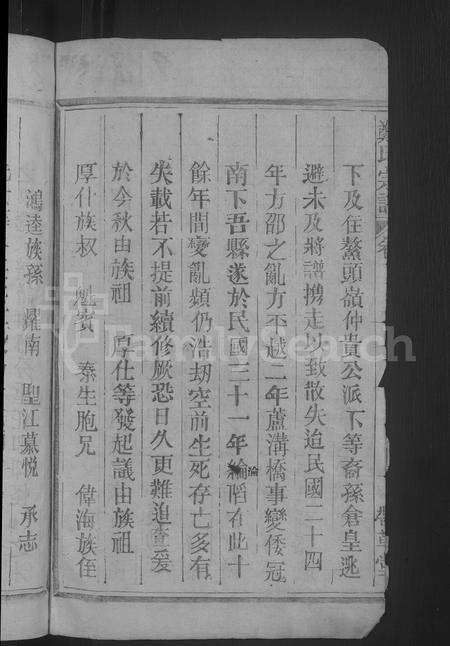 鄭氏宗譜 卷
下及住鰲頭嶺仲貴公派下等裔孫倉皇逃
避未及將譜携走以致散失迨民國二十四
年方邵之亂方丕越二年蘆溝橋事變倭冠
南下吾縣遂於民國三十一年淪陷在此十
餘年間變亂頻仍浩劫空前生死存亡多有
失載若不提前續修厥恐日久更難追查爰
於今秋由族祖 厚仕等發起議由族祖
厚什族叔 魁賓 泰生胞兄 偉海族侄
鴻逵族孫 耀南 聖江慕悦 承志
FamilySearch